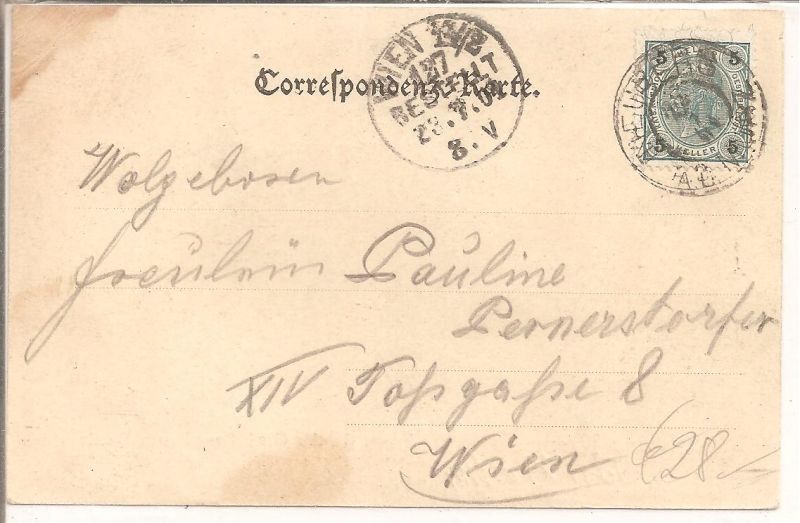 Correspondenz-Karte.
WIEN 12/2
127
BESTELLT
23.7.01
8.V
5 5
HELLER
5 5
Wolgeboren
Freulein Pauline
Pernerstorfer
XIV Toßgaße 8
Wien
28.—